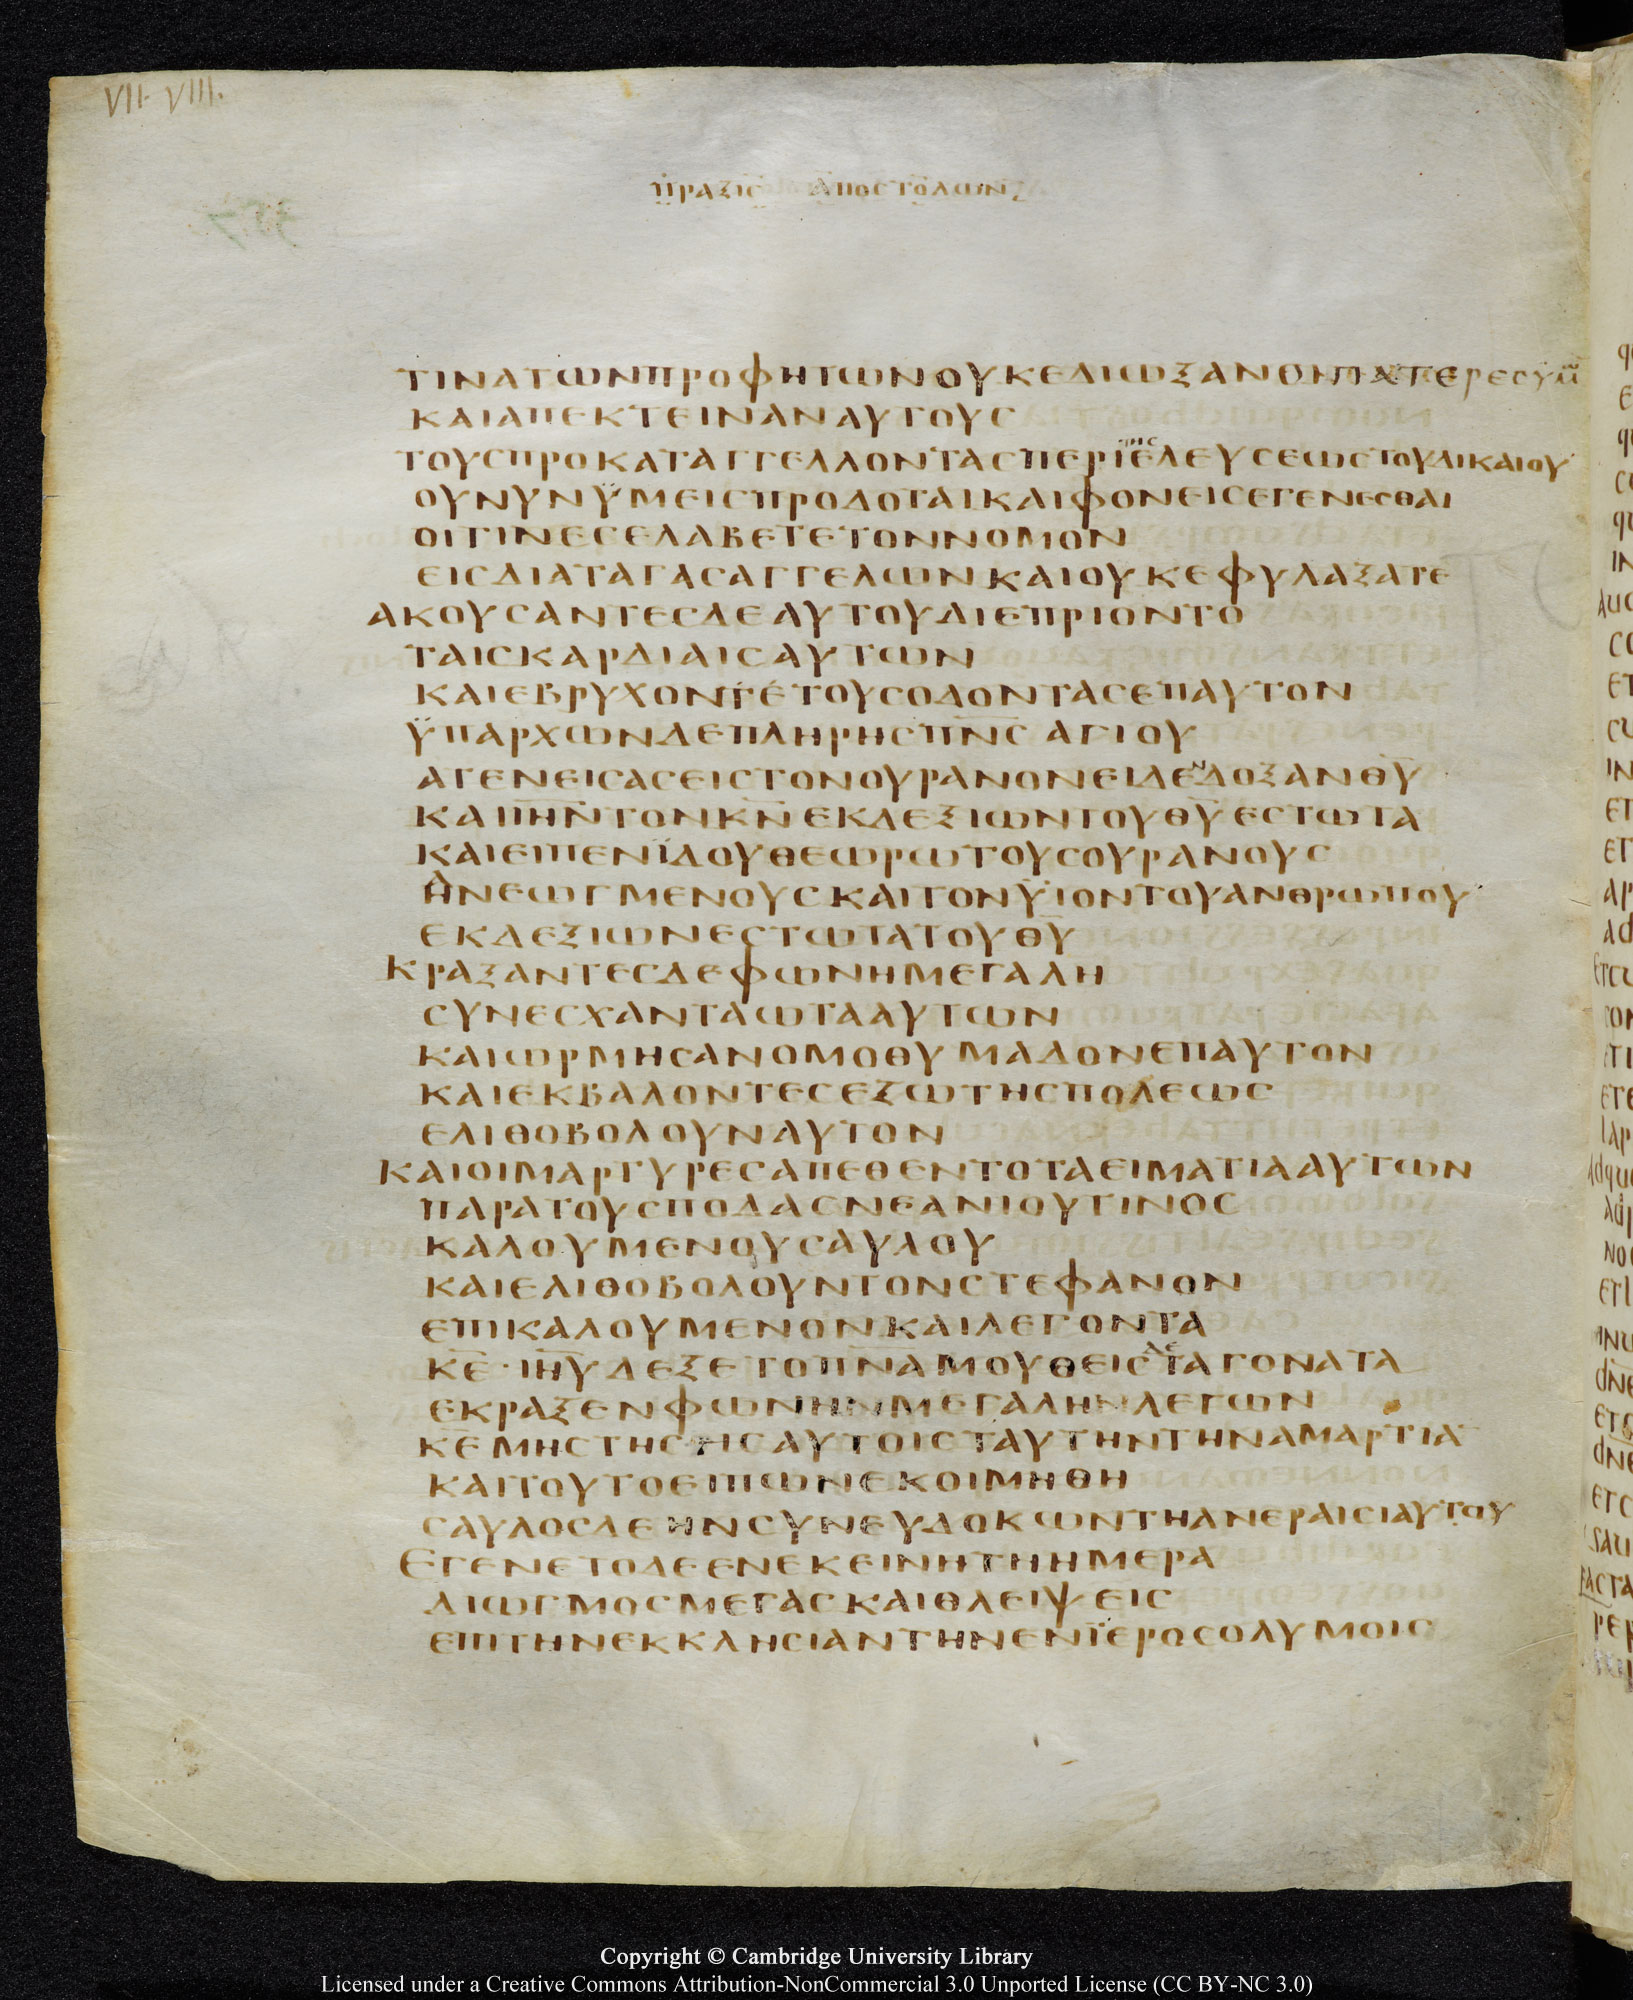 VII. VIII.
ΠΡΑΞΙϹ ΑΠΟϹΤΟΛΩΝ
ΤΙΝΑΤΩΝΠΡΟΦΗΤΩΝΟΥΚΕΔΙΩΞΑΝ
ΚΑΙΑΠΕΚΤΕΙΝΑΝΑΥΤΟΥϹ
ΤΟΥϹΠΡΟΚΑΤΑΓΓΕΛΛΟΝΤΑϹΠΕΡΙΤΗϹΕΛΕΥϹΕΩϹΤΟΥΔΙΚΑΙΟΥ
ΟΥΝΥΝΫΜΕΙϹΠΡΟΔΟΤΑΙΚΑΙΦΟΝΕΙϹΕΓΕΝΕϹΘΑΙ
ΟΙΤΙΝΕϹΕΛΑΒΕΤΕΤΟΝΝΟΜΟΝ
ΕΙϹΔΙΑΤΑΓΑϹΑΓΓΕΛΩΝΚΑΙΟΥΚΕΦΥΛΑΞΑΤΕ
ΑΚΟΥϹΑΝΤΕϹΔΕΑΥΤΟΥΔΙΕΠΡΙΟΝΤΟ
ΤΑΙϹΚΑΡΔΙΑΙϹΑΥΤΩΝ
ΚΑΙΕΒΡΥΧΟΝΤΕΤΟΥϹΟΔΟΝΤΑϹΕΠΑΥΤΟΝ
ΫΠΑΡΧΩΝΔΕΠΛΗΡΗϹΠΝ̅Ϲ ΑΓΙΟΥ
ΑΤΕΝΕΙϹΑϹΕΙϹΤΟΝΟΥΡΑΝΟΝΕΙΔΕΝΔΟΞΑΝΘΥ̅
ΚΑΙΙΗ̅ΝΤΟΝΚΝ̅ΕΚΔΕΞΙΩΝΤΟΥΘΥ̅ΕϹΤΩΤΑ
ΚΑΙΕΙΠΕΝΪΔΟΥΘΕΩΡΩΤΟΥϹΟΥΡΑΝΟΥϹ
ΗΝΕΩΓΜΕΝΟΥϹΚΑΙΤΟΝΫΙΟΝΤΟΥΑΝΘΡΩΠΟΥ
ΕΚΔΕΞΙΩΝΕϹΤΩΤΑΤΟΥΘΥ̅
ΚΡΑΞΑΝΤΕϹΔΕΦΩΝΗΜΕΓΑΛΗ
ϹΥΝΕϹΧΑΝΤΑΩΤΑΑΥΤΩΝ
ΚΑΙΩΡΜΗϹΑΝΟΜΟΘΥΜΑΔΟΝΕΠΑΥΤΟΝ
ΚΑΙΕΚΒΑΛΟΝΤΕϹΕΞΩΤΗϹΠΟΛΕΩϹ
ΕΛΙΘΟΒΟΛΟΥΝΑΥΤΟΝ
ΚΑΙΟΙΜΑΡΤΥΡΕϹΑΠΕΘΕΝΤΟΤΑΕΙΜΑΤΙΑΑΥΤΩΝ
ΠΑΡΑΤΟΥϹΠΟΔΑϹΝΕΑΝΙΟΥΤΙΝΟϹ
ΚΑΛΟΥΜΕΝΟΥϹΑΥΛΟΥ
ΚΑΙΕΛΙΘΟΒΟΛΟΥΝΤΟΝϹΤΕΦΑΝΟΝ
ΕΠΙΚΑΛΟΥΜΕΝΟΝΚΑΙΛΕΓΟΝΤΑ
ΚΕ̅·ΙΗ̅ΥΔΕΞΕΤΟΠΝ̅ΑΜΟΥΘΕΙϹΔΕΤΑΓΟΝΑΤΑ
ΕΚΡΑΞΕΝΦΩΝΗΝΜΕΓΑΛΗΝΛΕΓΩΝ
ΚΕ̅ΜΗϹΤΗϹΗϹΑΥΤΟΙϹΤΑΥΤΗΝΤΗΝΑΜΑΡΤΙΑ
ΚΑΙΤΟΥΤΟΕΙΠΩΝΕΚΟΙΜΗΘΗ
ϹΑΥΛΟϹΔΕΗΝϹΥΝΕΥΔΟΚΩΝΤΗΑΝΕΡΑΙϹΙΑΥΤΟΥ
ΕΓΕΝΕΤΟΔΕΕΝΕΚΕΙΝΗΤΗΗΜΕΡΑ
ΔΙΩΓΜΟϹΜΕΓΑϹΚΑΙΘΛΕΙΨΕΙϹ
ΕΠΙΤΗΝΕΚΚΛΗϹΙΑΝΤΗΝΕΝΪΕΡΟϹΟΛΥΜΟΙϹ
Copyright © Cambridge University Library
Licensed under a Creative Commons Attribution-NonCommercial 3.0 Unported License (CC BY-NC 3.0)